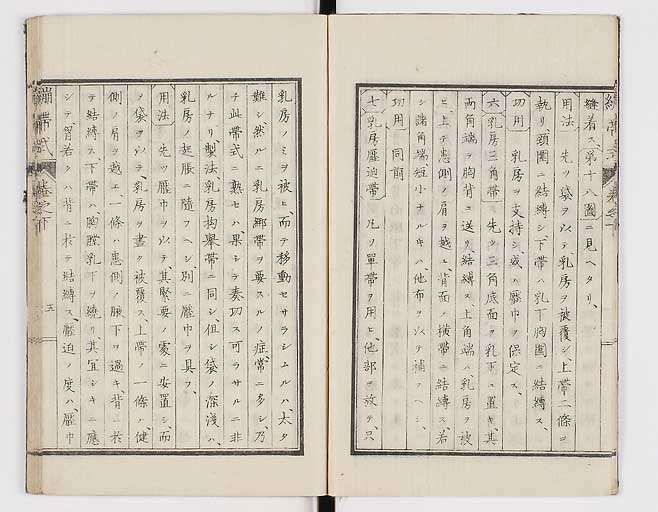 縫着ス、第十八圖ニ見ヘタリ、
用法 先ツ袋ヲ以テ乳房ヲ被覆シ、上帶二條ヲ
執リ、頸圍ニ結縛シ、下帶ハ乳下胸圍ニ結縛ス、
功用 乳房ヲ支持シ、或ハ罨巾ヲ保定ス、
六 乳房三角帶 先ツ三角底面ヲ乳下ニ置キ、其
兩角端ヲ胸背ニ送リ、結縛ス、上角端ハ乳房ヲ被
ヒ、上テ患側ノ肩ヲ越ヱ、背面ノ横帶ニ結縛ス、若
シ諸角端、短小ナルキハ、他布ヲ以テ補フヘシ、
功用 同前
七 乳房壓迫帶 凡ソ單帶ヲ用ヒ、他部ヲ放テ、只
乳房ノミヲ被ヒ、而テ移動セサラシムルハ、太タ
難シ、然ルニ乳房繃帶ヲ要スルノ症、常ニ多シ、乃
チ此帶式ニ熟セハ、果シテ奏功ス可ラサルニ非
ルナリ、製法、乳房拘擧帶ニ同シ、但シ袋ノ深淺ハ、
乳房ノ起脹ニ隨フヘシ、別ニ壓巾ヲ具フ、
用法 先ツ壓巾ヲ以テ、其緊要ノ處ニ安置シ、而
ノ袋ヲ以テ、乳房ヲ盡ク被覆ス、上帶ノ一條ハ、健
側ノ肩ヲ越ヱ、一條ハ患側ノ腋下ヲ過キ、背ニ於
テ結縛ス、下帶ハ、胸膛乳下ヲ繞リ、其宜シキニ應
シテ、胷若クハ背ニ於テ結縛ス、壓迫ノ度ハ、壓巾
繃帶式 卷之下
五